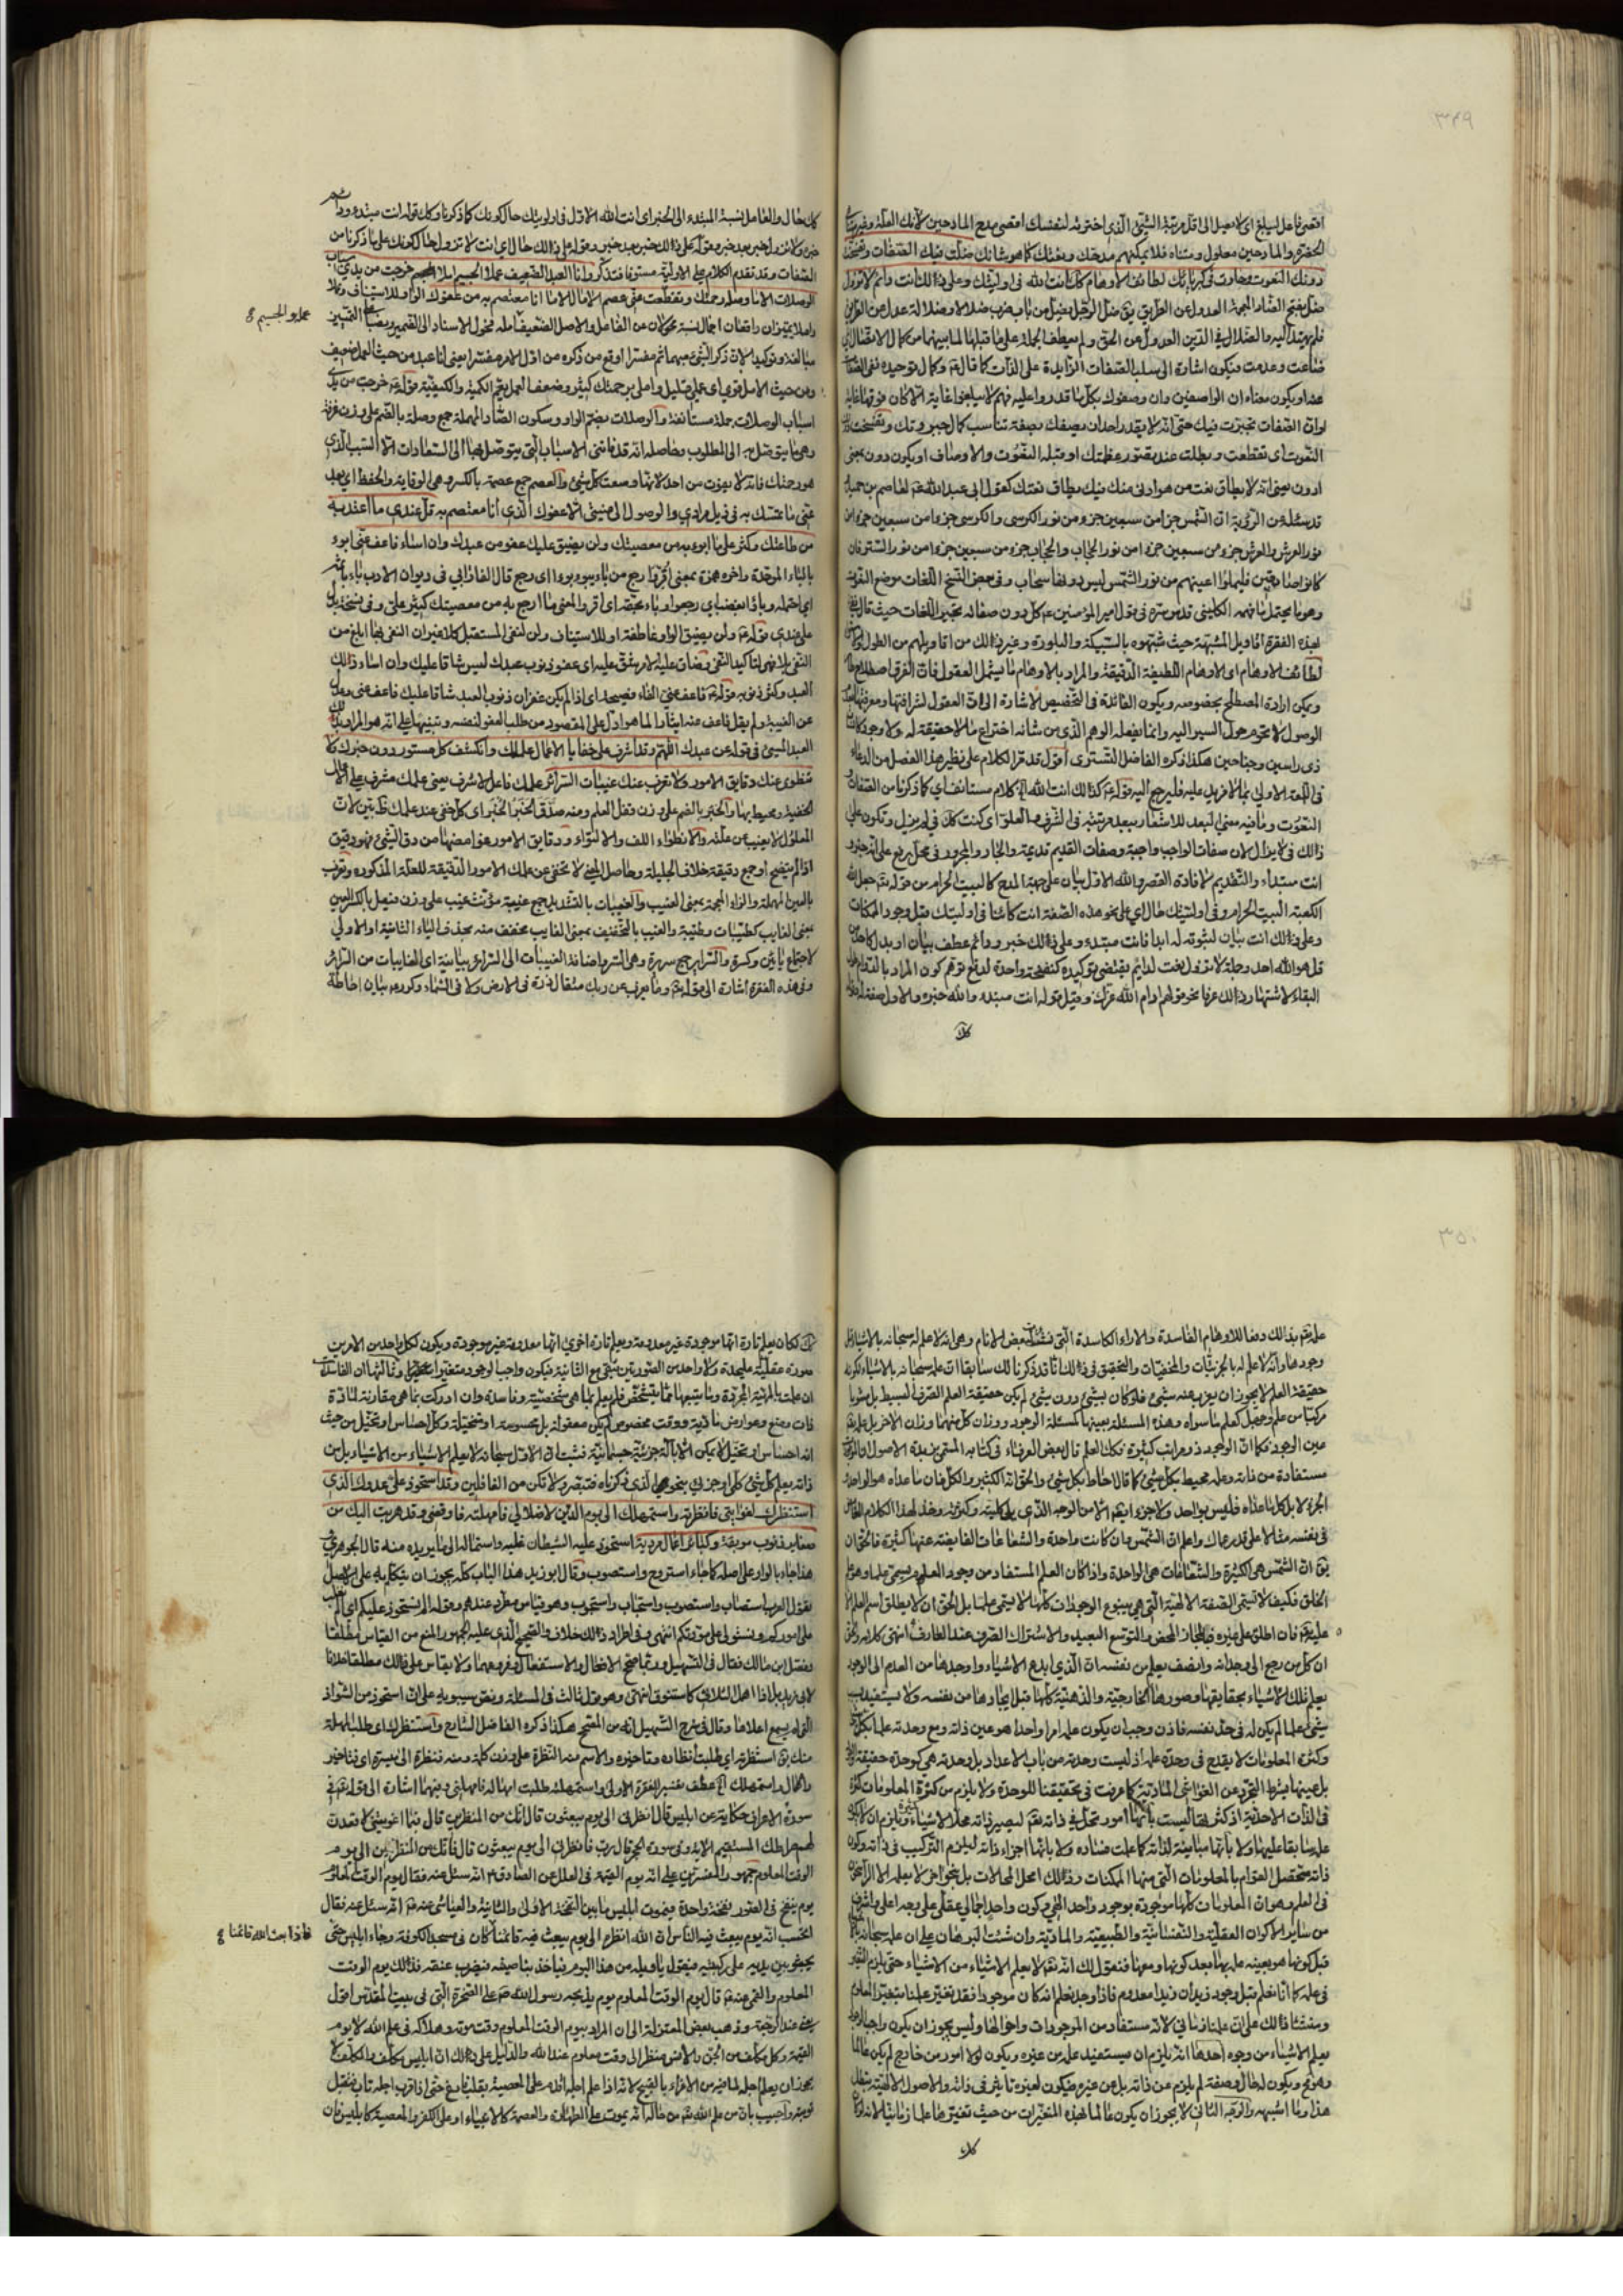 ٣٤٩
اقصى فاعل ليبلغ اى لا يصل الى اقل مرتبة الشئ الذى اخترته لنفسك اقصى مدح المادحين لانك العلة وغيرك
الحقيرة والمادحين معلول ومتناه فلا يمكنهم مدحك ونعتك كما هو شانك ضلت فيك الصفات وتفسخت
دونك النعوت وحارت فى كبريائك لطائف الاوهام كذلك انت الله فى اوليتك وعلى ذلك انت دائم لا تزول
ضل بفتح الضاد المعجمة العدول عن الطريق يق ضل الرجل يضل من باب ضرب ضلالا وضلالة عدل عن الطريق
فلم يهتد اليه والضلال فى الدين العدول عن الحق ولم يعطف الجملة على ما قبلها لما بينهما من كمال الاتصال
ضاعت وعدمت ويكون اشارة الى سلب الصفات الزايدة على الذات كما قال ع وكمال توحيده نفى الصفات
عنه او يكون معناه ان الواصفين وان وصفوك بكل ما قدروا عليه فهم لا يبلغوا غاية الا كان فوقها غاية
لو ان الصفات تحيرت فيك حتى انه لا يقدر احد ان يصفك بصفة تناسب كمال جبروتك وتفسخت
النعوت اى تقطعت وبطلت عند تصور عظمتك او مثله النعوت والاوصاف او يكون دون بمعنى
ادون يعنى انه لا يطاق نعت من هو ادنى منك فيك يطاق نعتك كقول ابى عبد الله ع لعاصم بن حميد
قد سئله عن الرؤية ان الشمس جزء من سبعين جزء من نور الكرسى والكرسى جزء من سبعين جزء من
نور العرش والعرش جزء من سبعين جزء من نور الحجاب والحجاب جزء من سبعين جزء من نور الستر فان
كانوا صادقين فليملوا اعينهم من نور الشمس ليس دونها سحاب وفى بعض النسخ اللغات موضع النعوت
لهذه الفقرة اقاويل المشبهة حيث شبهوه بالسبيكة والبلورة وغير ذلك من اقاويلهم من الطول
لطائف الاوهام اى الاوهام اللطيفة الدقيقة والمراد بالاوهام ما يشمل العقول فان الفرق اصطلاح
ويمكن ارادة المصطلح بخصوصه ويكون الفائدة فى التخصيص الاشارة الى ان العقول لشرافتها ومعرفتها
الوصول لا تحوم حول السير اليه وانما يفعله الوهم الذى من شانه اختراع ما لا حقيقة له ولا وجود
ذى راسين وجناحين هكذا ذكره الفاضل التسترى اقول قد مر الكلام على نظير هذا الفصل من الدعاء
فى اللمعة الاولى بما لا مزيد عليه فليرجع اليه قوله ع كذلك انت الله الخ كلام مستانف اى كما ذكرنا من الصفات
النعوت وما فيه معنى البعد للاشعار ببعد مرتبته فى الشرف والعلو اى كنت كك فى لم يزل وتكون على
ذلك فى لا يزال لان صفات الواجب واجبة وصفات القديم قديمة والجار والمجرور فى محل رفع على انه خبر
انت مبتداء والتقديم لافادة القصر والله الاول بيان على جهة المدح كالبيت الحرام من قوله تع جعل الله
الكعبة البيت الحرام وفى اوليتك حال اى على نحو هذه الصفة انت كائنا فى اوليتك قبل وجود الممكنات
وعلى ذلك انت بيان لثبوته له ابدا فانت مبتدء وعلى ذلك خبر ودائم عطف بيان او بدل كاحد
قل هو الله احد وجملة لا تزول نعت لدائم يقتضى توكيده كنفخة واحدة لدفع توهم كون المراد بالدوام طول
البقاء لاشتهار ذلك عرفا نحو قولهم ادام الله عزك وقيل قوله انت مبتدء والله خبره والاول صفة
كك
كك حال والعامل نسبة المبتدء الى الخبر اى انت الله الاول فى اوليتك حال كونك كما ذكرنا وكك قوله انت مبتدء ودائم
خبره ولا تزول خبر بعد خبر وقوله على ذلك خبر بعد خبر وقوله على ذلك حال اى انت لا تزول حال كونك على ما ذكرنا من
الصفات وقد تقدم الكلام على الاولية مستوفا فتذكر وانا العبد الضعيف عملا الجسيم املا خرجت من يدى اسباب
الوصلات الا ما وصله رحمتك وتقطعت عنى عصم الامال الا ما انا معتصم به من عفوك الواو للاستيناف وعملا
عملا والجسيم
واملا تميزان رافعان اجمال نسبة محولان عن الفاعل والاصل الضعيف عمله فحول الاسناد الى الضمير ونصبا على التمييز
مبالغة وتوكيدا لان ذكر الشئ مبهما ثم مفسرا اوقع من ذكره من اول الامر مفسرا يعنى انا عبد من حيث العمل ضعيف
ومن حيث الامل قوى اى عملى قليل واملى برحمتك كثير وضعف العمل يعم الكمية والكيفية قوله ع خرجت من يدى
اسباب الوصلات جملة مستانفة والوصلات بضم الواو وسكون الصاد المهملة جمع وصلة بالضم على وزن غرفة
وهى ما يتوصل به الى المطلوب وحاصله انه قد فاتنى الاسباب التى يتوصل بها الى السعادات الا السبب الذى
هو رحمتك فانه لا يفوت من احد لانها وسعت كل شئ والعصم جمع عصمة بالكسر وهى الوقاية والحفظ اى بعد
عنى ما تمسك به فى نيل مرادى والوصول الى منيتى الا عفوك الذى انا معتصم به قل عندى ما اعتد به
من طاعتك وكثر على ما ابوء به من معصيتك ولن يضيق عليك عفو من عبدك وان اساء فاعف عنى ابوء
بالباء الموحدة واخره همزة بمعنى اقر او ارجع من باء يبوء بوء اى رجع قال الفارابى فى ديوان الادب باء باثمه
اى احتمله وباؤا بغضب اى رجعوا وباء بحقه اى اقر والمعنى ما ارجع به من معصيتك كثير على وفى نسخة بدل
على عندى قوله ع ولن يضيق الواو عاطفة او للاستيناف ولن لنفى المستقبل كلا غير ان النفى بها ابلغ من
النفى بلا فهى لتاكيد النفى وضاق عليه الامر شق عليه اى عفو ذنوب عبدك ليس شاقا عليك وان اساء ذلك
العبد وكثر ذنوبه قوله ع فاعف عنى الفاء فصيحة اى اذا لم يكن غفران ذنوب العبد شاقا عليك فاعف عنى وعدل
عن الغيبة ولم يقل فاعف عنه ايثارا لما هو ادل على المقصود من طلب العفو لنفسه وتنبيها على انه هو المراد بذلك
العبد المسيئ فى قوله عن عبدك اللهم وقد اشرف على خفايا الاعمال علمك وانكشف كل مستور دون خبرك ولا
تنطوى عنك دقايق الامور ولا تعزب عنك غيبات السرائر علمك فاعل لاشرف يعنى علمك مشرف على الاعمال
الخفية ومحيط بها والخبر بالضم على وزن قفل العلم ومنه صدق الخبر الخبر اى كل خفى عند علمك ظاهر بين لان
المعلول لا يغيب عن علته والانطواء اللف والالتواء ودقايق الامور غوامضها من دق الشئ فهو دقيق
اذا لم يتضح او جمع دقيقة خلاف الجليلة وحاصل المعنى لا تخفى عن علمك الامور الدقيقة للعلة المذكورة وتعزب
بالعين المهملة والزاء المعجمة بمعنى الغيب والغيبات بالتشديد جمع غيبة مؤنث غيب على وزن فيعل بالكسر العين
بمعنى الغايب كطيبات وطيبة والغيب بالتخفيف بمعنى الغايب مخفف منه بحذف الياء الثانية او الاولى
لاجتماع يائين وكسرة والسراير جمع سريرة وهى السر واضافة الغيبات الى السراير بيانية اى الغايبات من السرائر
وفى هذه الفقرة اشارة الى قوله تع وما يعزب عن ربك مثقال ذرة فى الارض ولا فى السماء وكوره ع بيان احاطة
٣٥٠
علمه تع بذلك دفعا للاوهام الفاسدة والاراء الكاسدة التى نشات لبعض الانام وهى انه لا علم له سبحانه بالاشياء قبل
وجودها وانه لا علم له بالجزئيات والمخفيات والتحقيق فى ذلك انا قد ذكرنا لك سابقا ان علمه سبحانه بالاشياء لكونه
حقيقة العلم لا يجوز ان يعزب عنه شئ فلو كان بشئ دون شئ لم يكن حقيقة العلم الصرف البسيط بل مشوبا
مركبا من علم وجهل كعلم ما سواه وهذه المسئلة بعينها كمسئلة الوجود ووزان كل منهما وزان الاخر بل علمه تع
عين الوجود فكما ان الوجود ذو مراتب كثيرة فكك العلم قال بعض العرفاء فى كتابه
مستفادة من ذاته وعلمه محيط بكل شئ كما قال احاط بكل شئ والحق انه الكثير والكل فان ما عداه هو الواحد
الجزء لا بل كل ما عداه فليس بواحد ولا جزء ايضا الا من الوجه الذى يلى كليته وكثرته وخذ لهذا الكلام الغامض
فى نفسه مثالا على قدر عماك واعلم ان الشمس وان كانت واحدة والشعاعات الفايضة عنها كثيرة فالحق ان
يق ان الشمس هى الكثيرة والشعاعات هى الواحدة واذا كان العلم المستفاد من وجود المعلوم يسمى علما وهو علم
الخلق فكيف لا تسمى الصفة الالهية التى هى ينبوع الوجودات كلها الا يسمى علما بل الحق ان لا يطلق اسم العلم الا
عليه تع فان اطلق على غيره فبالمجاز المحض والتوسع البعيد والاشتراك الصرف عند العارف انتهى كلامه
ان كل من رجع الى وجدانه وانصف يعلم من نفسه ان الذى ابدع الاشياء واوجدها من العدم الى الوجود
يعلم تلك الاشياء بحقايقها وصورها الخارجية والذهنية كلها قبل ايجادها من نفسه ولا يستفيد من
شئ علما لم يكن له فى حد نفسه فاذن وجب ان يكون علمه امرا واحدا هو عين ذاته ومع وحدته علما بكل
وكثرة المعلومات لا يقدح فى وحدة علمه اذ ليست وحدته من باب الاعداد بل وحدته هى كوحدة حقيقة
بل عينها بشرط التجرد عن الغواشى المادية كما عرفت فى تحقيقنا للوحدة ولا يلزم من كثرة المعلومات كثرة
فى الذات الاحدية اذ كثرتها ليست بانها امور تحل فى ذاته تع ليصير ذاته محلا للاشياء ويلزم ان لا يكون
علمه سابقا عليها ولا بانها مباينة لذاته كما علمت فساده ولا بانها اجزاء ذاته ليلزم التركيب فى ذاته وكون
ذاته متحصل القوام بالمعلومات التى منها الممكنات وذلك امحل المحالات بل بنحو اخر لا يعلمه الا الراسخون
فى العلم وهو ان المعلومات كلها موجودة بوجود واحد الهى وكون واحد اجمالى عقلى على وجه اعلى واشرف
من سائر الاكوان العقلية والنفسانية والطبيعية والمادية وان شئت البرهان على ان علمه سبحانه بالاشياء
قبل كونها هو بعينه علمه بها بعد كونها ومعها فنقول لك انه تع لا يعلم الاشياء من الاشياء حتى يلزم التغير
فى علمه كما انا نعلم قبل وجود زيد ان زيدا معدوم فاذا وجد نعلم انه كان موجودا فقد تغير علمنا بتغير المعلوم
ومنشا ذلك على ان علمنا زمانى لانه مستفاد من الموجودات واحوالها وليس يجوز ان يكون واجب الوجود
يعلم الاشياء من وجوه احدها انه يلزم ان يستفيد علمه من غيره ويكون لولا امور من خارج لم يكن عالما
وهو تع ويكون له حال وصفة لم يلزم عن ذاته بل عن غيره فيكون لغيره تاثير فى ذاته والاصول الالهية تبطل
هذا وما اشبهه والوجه الثانى لا يجوز ان يكون عالما بهذه المتغيرات من حيث تغيرها علما زمانيا لانه لو كان
كك
كك لكان يعلم تارة انها موجودة غير معدومة ويعلم تارة اخرى انها معدومة غير موجودة ويكون لكل واحد من الامرين
صورة عقلية عليحدة ولا واحد من الصورتين تبقى مع الثانية فيكون واجب الوجود متغيرا وثالثها ان الفاسدة
ان علمت بالمهية المجردة وما يتبعها مما لا يتشخص فلم يعلم بما هى شخصية وفاسدة وان ادركت بما هى مقارنة لمادة
ذات وضع وعوارض مادية ووقت مخصوص لم يكن معقولة بل محسوسة او متخيلة وكل احساس او تخيل من حيث
انه احساس او تخيل لا يمكن الا بالة جزئية جسمانية فثبت ان الاول سبحانه لا يعلم الاشياء من الاشياء بل من
ذاته يعلم كل شئ كلى او جزئى بنحو الذى ذكرناه فتبصر ولا تكن من الغافلين وقد استحوذ على عدوك الذى
استنظرك لغوايتى فانظرته واستمهلك الى يوم الدين لاضلالى فامهلته فاوقعنى وقد هربت اليك من
صغاير ذنوب موبقة وكبائر اعمال مردية استحوذ عليه الشيطان غلبه واستماله الى ما يريده منه قال الجوهرى
هذا جاء بالواو على اصله كما جاء استروح واستصوب وقال ابو زيد هذا الباب كله يجوز ان يتكلم به على الاصل
تقول العرب استصاب واستصوب واستجاب واستجوب وهو قياس مطرد عندهم وقوله الم نستحوذ عليكم اى الم نغلب
على اموركم ونستولى على مودتكم انتهى وفى اطراد ذلك خلاف والصحيح الذى عليه الجمهور المنع من القياس مطلقا
وفصل ابن مالك فقال فى التسهيل وربما صحح الافعال والاستفعال وفروعهما ولا يقاس على ذلك مطلقا خلافا
لابى زيد بل اذا اهمل الثلاثى كاستنوق انتهى وهو قول ثالث فى المسئلة ونص سيبويه على ان استحوذ من الشواذ
التى لم يسمع اعلالها وقال فى شرح التسهيل انه من المصحح هكذا ذكره الفاضل الشارح واستنظرك اى طلب المهلة
منك يق استنظرته اى طلبت انظاره وتاخيره والاسم منه النظرة على وزن كلمة ومنه فنظرة الى ميسرة اى فتاخير
وامهال واستمهلك الخ عطف تفسير للفقرة الاولى واستمهلته طلبت امهاله فامهلنى وفيهما اشارة الى قوله تع فى
سورة الاعراف حكاية عن ابليس قال انظرنى الى يوم يبعثون قال انك من المنظرين قال فبما اغويتنى لاقعدن
لهم صراطك المستقيم الاية وفى سورة الحجر قال رب فانظرنى الى يوم يبعثون قال فانك من المنظرين الى يوم
الوقت المعلوم جمهور المفسرين على انه يوم القيمة وفى العلل عن الصادق ع انه سئل عنه فقال يوم الوقت المعلوم
يوم ينفخ فى الصور نفخة واحدة فيموت ابليس ما بين النفخة الاولى والثانية والعياشى عنه ع انه سئل عنه فقال
اتحسب انه يوم يبعث فيه الناس ان الله انظره الى يوم يبعث فيه قائمنا كان فى مسجد الكوفة وجاء ابليس حتى
فاذا بعث الله قائمنا
يجثو بين يديه على ركبتيه فيقول يا ويله من هذا اليوم فياخذ بناصيته فيضرب عنقه فذلك يوم الوقت
المعلوم والقمى عنه ع قال يوم الوقت المعلوم يوم يذبحه رسول الله ص على الصخرة التى فى بيت المقدس اقول
يعنى عند الرجعة وذهب بعض المعتزلة الى ان المراد بيوم الوقت المعلوم وقت موته وهلاكه فى علم الله لا يوم
القيمة وكل مكلف من الجن والانس منظر الى وقت معلوم عند الله والدليل على ذلك ان ابليس مكلف والمكلف لا
يجوز ان يعلم اجله لما فيه من الاغراء بالقبيح لانه اذا علم اجله اقدم على المعصية بقلب فارغ حتى اذا قرب اجله تاب فتقبل
توبته واجيب بان من علم الله تع من حاله انه يموت على الطهارة والعصمة كالانبياء او على الكفر والمعصية كابليس فان